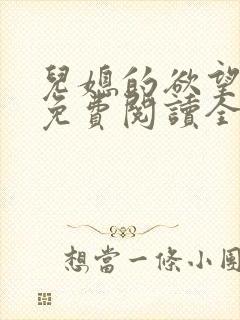 兒媳的欲望
免費閱讀全
想當一條小團